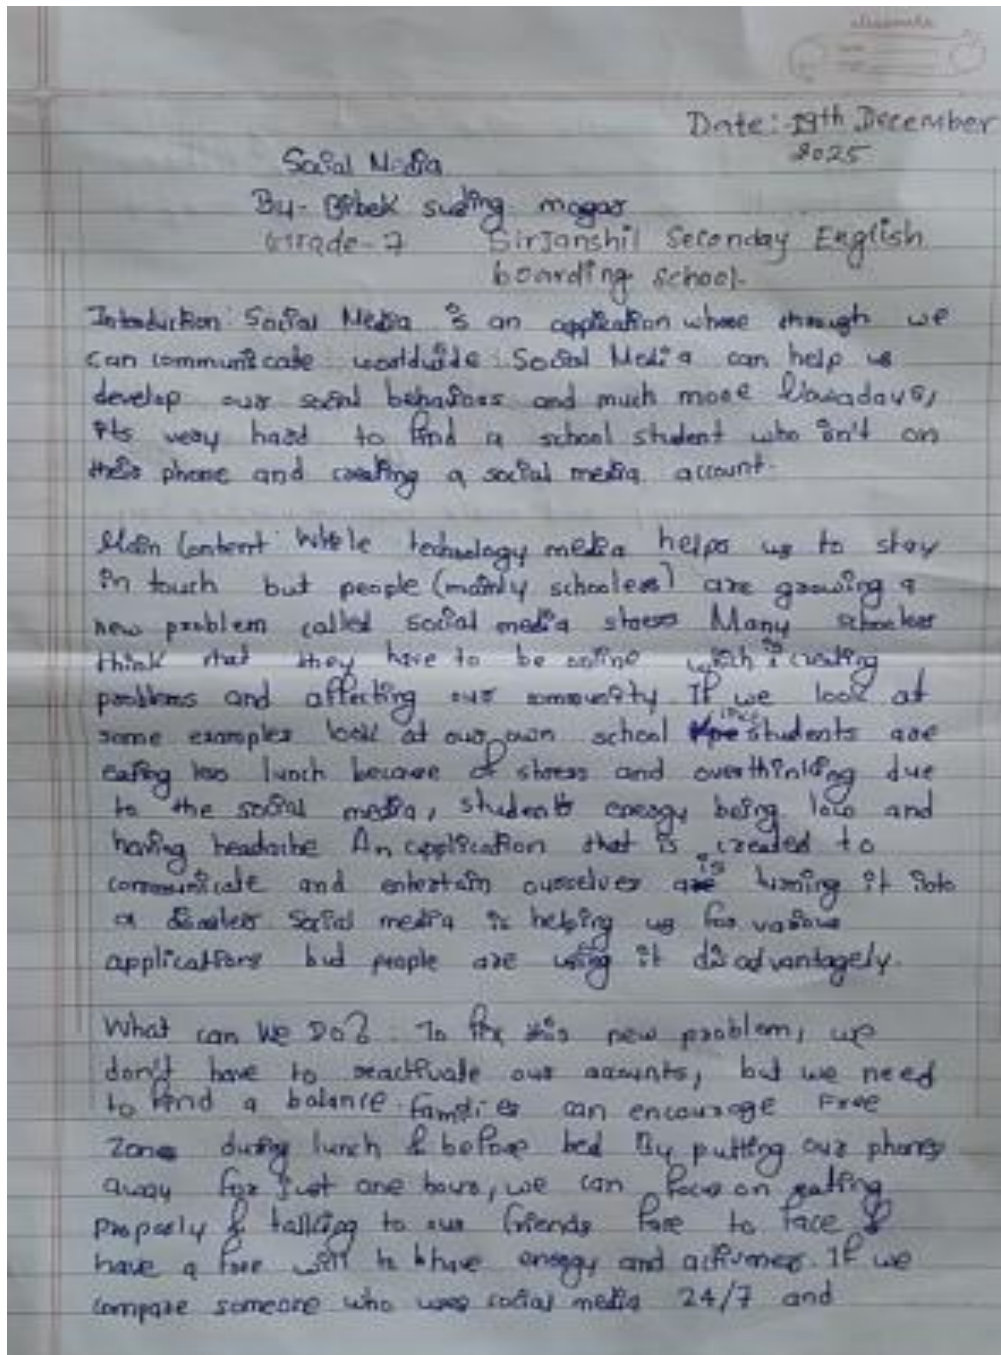 Date: 19th December
2025
Social Media
By- Bibek suding magar
Grade-7 Sirjanshil Seconday English
boarding school.
Introduction: Social Media is an application where through we
can communicate worldwide. Social Media can help us
develop our social behaviors and much more Nowadays,
its very hard to find a school student who isn't on
their phone and creating a social media account.
Main Content: While technology media helps us to stay
in touch but people (mainly schoolers) are growing a
new problem called social media stress Many schoolers
think that they have to be online which is creating
problems and affecting our community. If we look at
some examples look at our own school students are
eating less lunch because of stress and overthinking due
to the social media, students energy being low and
having headache An application that is created to
communicate and entertain ourselves is turning it into
a disaster Social media is helping us for various
applications but people are using it disadvantagely.
What can We Do? To fix this new problem, we
don't have to reactivate our accounts, but we need
to find a balance. families can encourage Free
Zone during lunch & before bed By putting our phones
away for just one hours, we can focus on eating
properly & talking to our friends face to face &
have a free will to have energy and activeness. If we
compare someone who uses social media 24/7 and